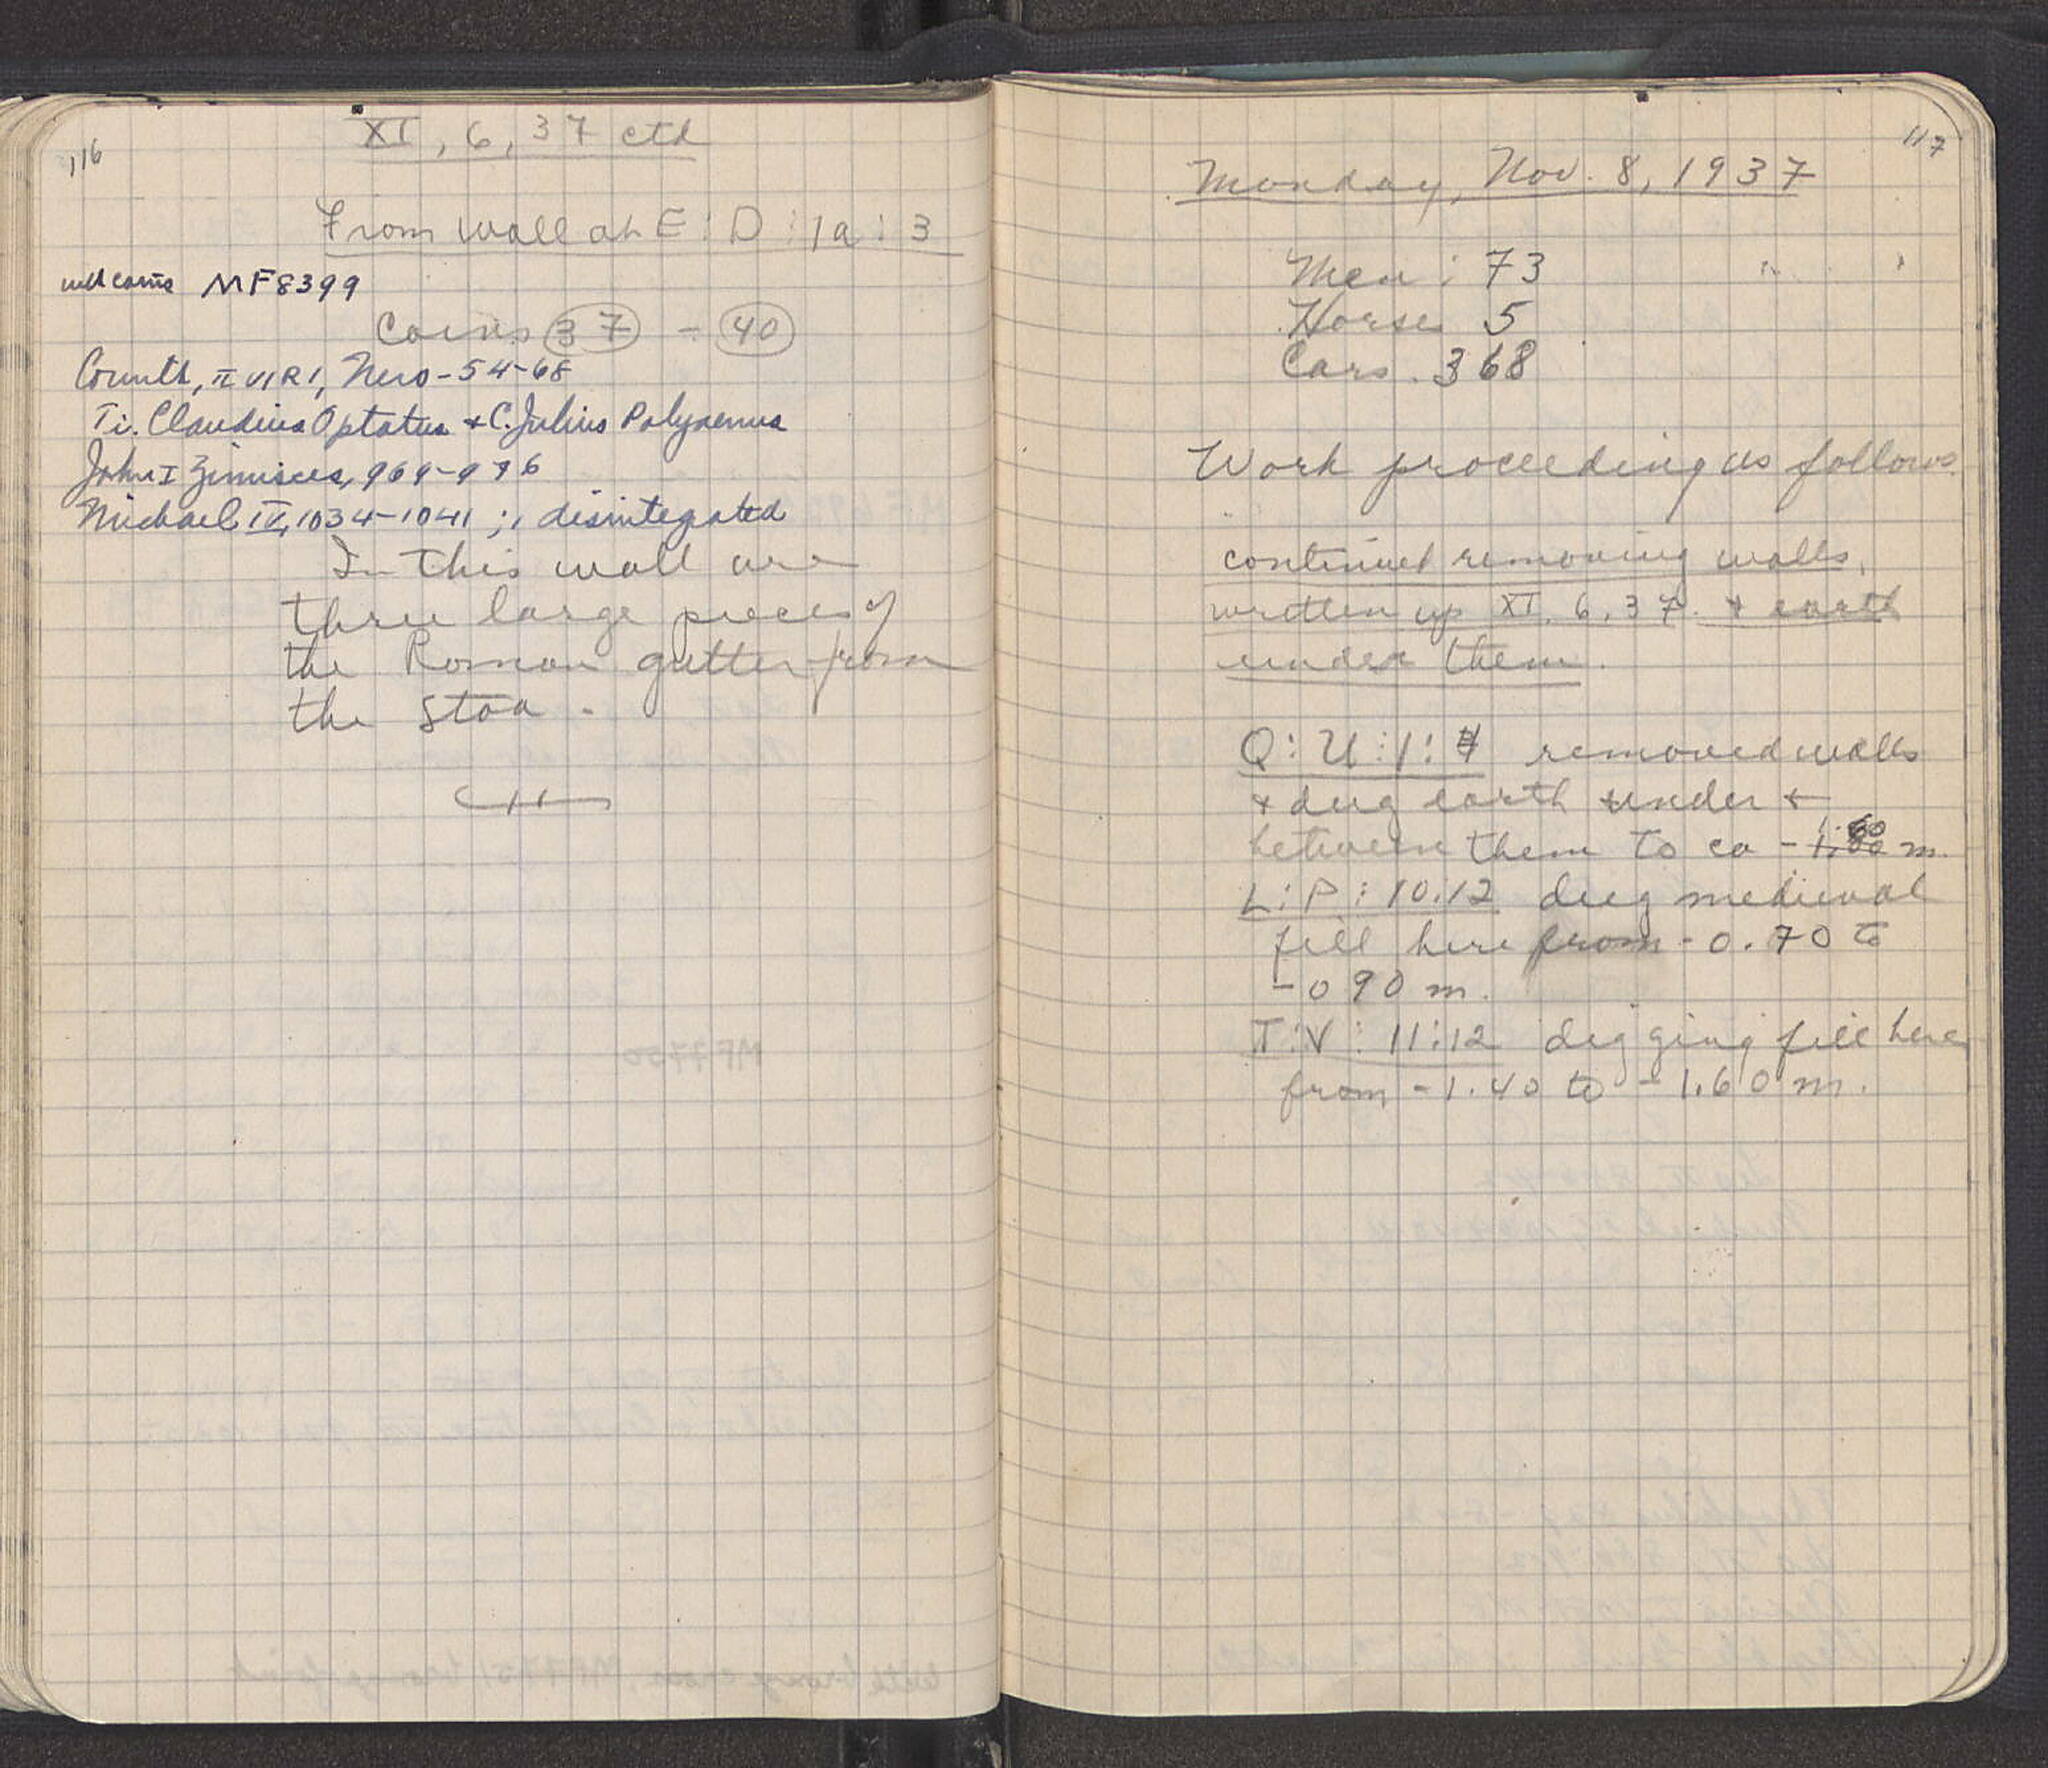 116
XI, 6, 37 ctd
From wall at E:D:1a:3
MF8399
Coins 37 - 40
Corinth, II VIRI, Nero - 54-68
Ti. Claudius Optatus + C. Julius Polyaenus
John I Zimisces, 969-976
Michael IV, 1034-1041 ; 1 disintegrated
In this wall are
three large pieces of
the Roman gutter from
the Stoa.
117
Monday, Nov. 8, 1937
Men: 73
Horses 5
Cars. 368
Work proceeding as follows
continued removing walls,
written up XI. 6, 37. & earth
under them.
Q:U:1: removed walls
+ dug earth under +
between them to ca - m.
L:P:10:12 dug medieval
fill here from - 0.70 to
- 0 90 m.
T:V:11:12 digging fill here
from - 1.40 to - 1.60 m.